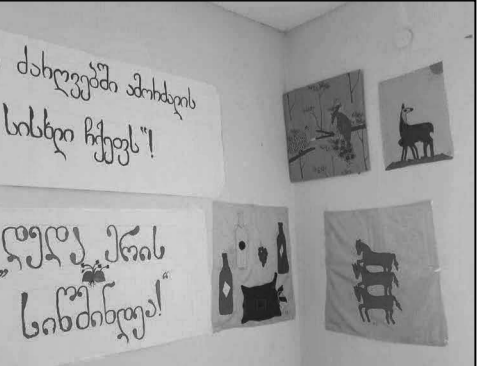 ძარღვებში ამორძალის
სისხლი ჩქეფს"!
„დედა ერის
სიწმინდეა!"